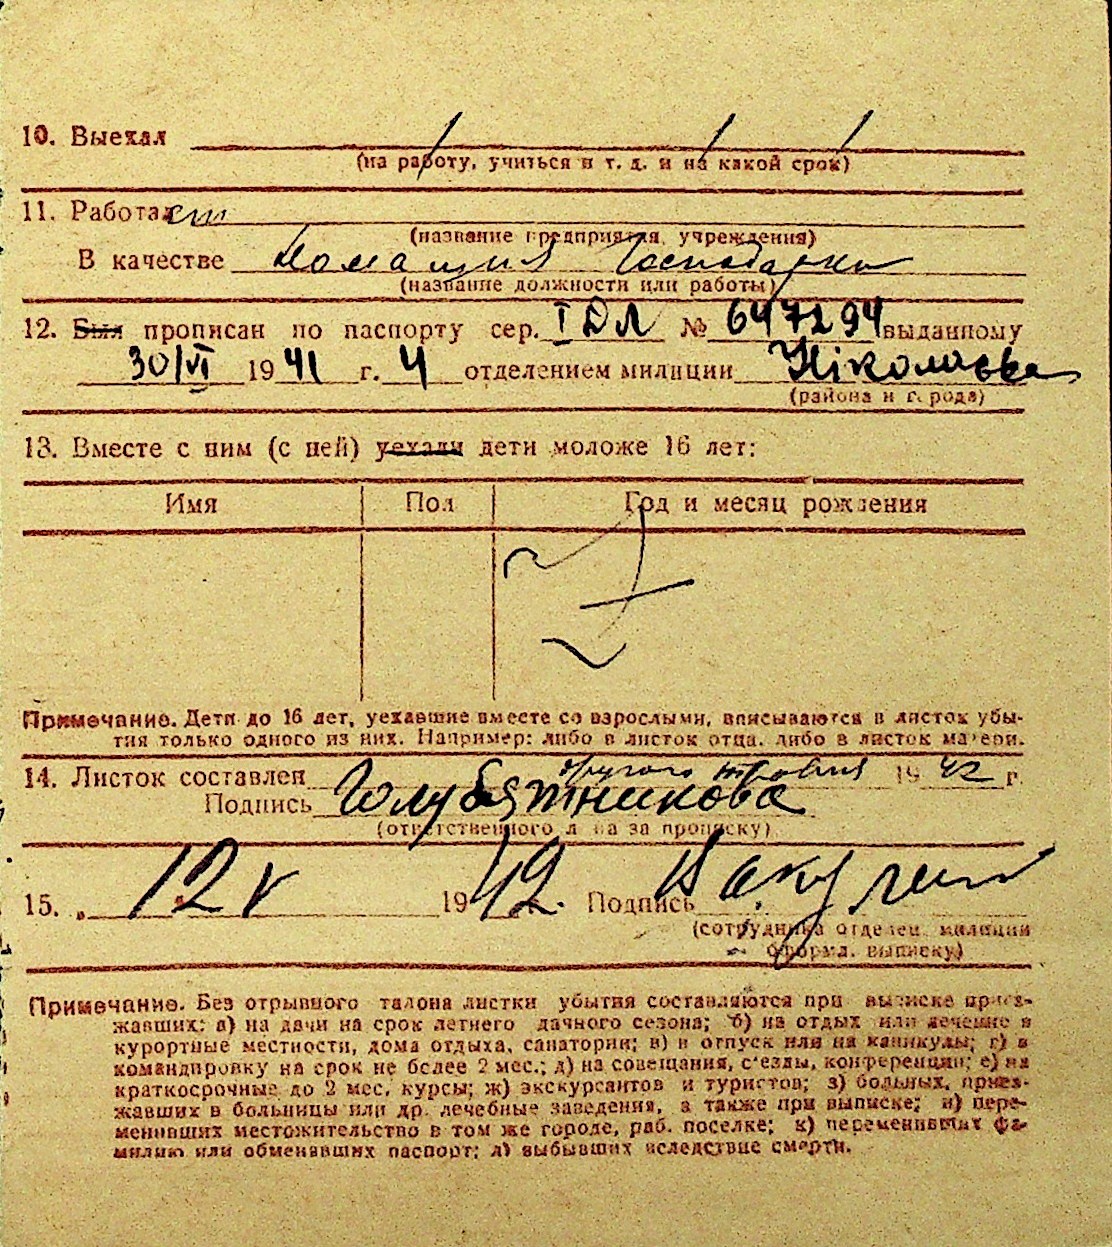 10. Выехал
(на работу, учиться и т. д. и на какой срок)
11. Работал
(название предприятия, учреждения)
В качестве домашня господарка
(название должности или работы)
12. Был прописан по паспорту сер. I ДЛ № 647294 выданному
30/VI 1941 г. 4 отделением милиции Ніколаєва
(района и города)
13. Вместе с ним (с ней) уехали дети моложе 16 лет:
Имя Пол Год и месяц рождения
Примечание. Дети до 16 лет, уехавшие вместе со взрослыми, вписываются в листок убы-
тия только одного из них. Например: либо в листок отца, либо в листок матери.
14. Листок составлен другого травня 1942 г.
Подпись Голубятникова
(ответственного лица за прописку)
15. „12" V 1942. Подпись
(сотрудника отделен. милиции
оформл. выписку)
Примечание. Без отрывного талона листки убытия составляются при выписке приез-
жавших: а) на дачи на срок летнего дачного сезона; б) на отдых или лечение в
курортные местности, дома отдыха, санатории; в) в отпуск или на каникулы; г) в
командировку на срок не более 2 мес.; д) на совещания, с'езды, конференции; е) на
краткосрочные до 2 мес. курсы; ж) экскурсантов и туристов; з) больных, приез-
жавших в больницы или др. лечебные заведения, а также при выписке; и) пере-
менивших местожительство в том же городе, раб. поселке; к) переменивших фа-
милию или обменявших паспорт; л) выбывших вследствие смерти.